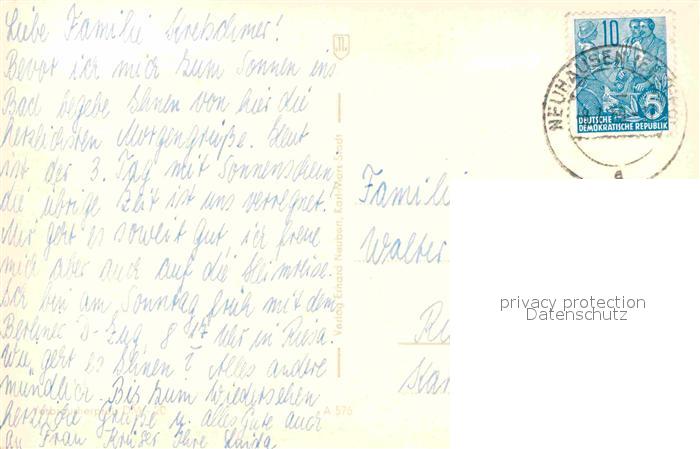 Liebe Familie Kretschmer!
Bevor ich mich zum Sonnen ins
Bad begebe Ihnen von hier die
herzlichsten Morgengrüße. Heut
ist der 3. Tag mit Sonnenschein,
die übrige Zeit ist uns verregnet.
Mir geht es soweit gut, ich freue
mich aber auch auf die Heimreise.
Ich bin am Sonntag früh mit dem
Berliner D-Zug, 8 47 Uhr in Riesa.
Wie geht es Ihnen? Alles andere
mündlich. Bis zum Wiedersehen
herzliche Grüße u. alles Gute auch
an Frau Krüger Ihre
Verlag Erhard Neubert, Karl-Marx-Stadt
A 576
10
5
DEUTSCHE
DEMOKRATISCHE REPUBLIK
NEUHAUSEN
a
Famili
Walter
privacy protection
Datenschutz